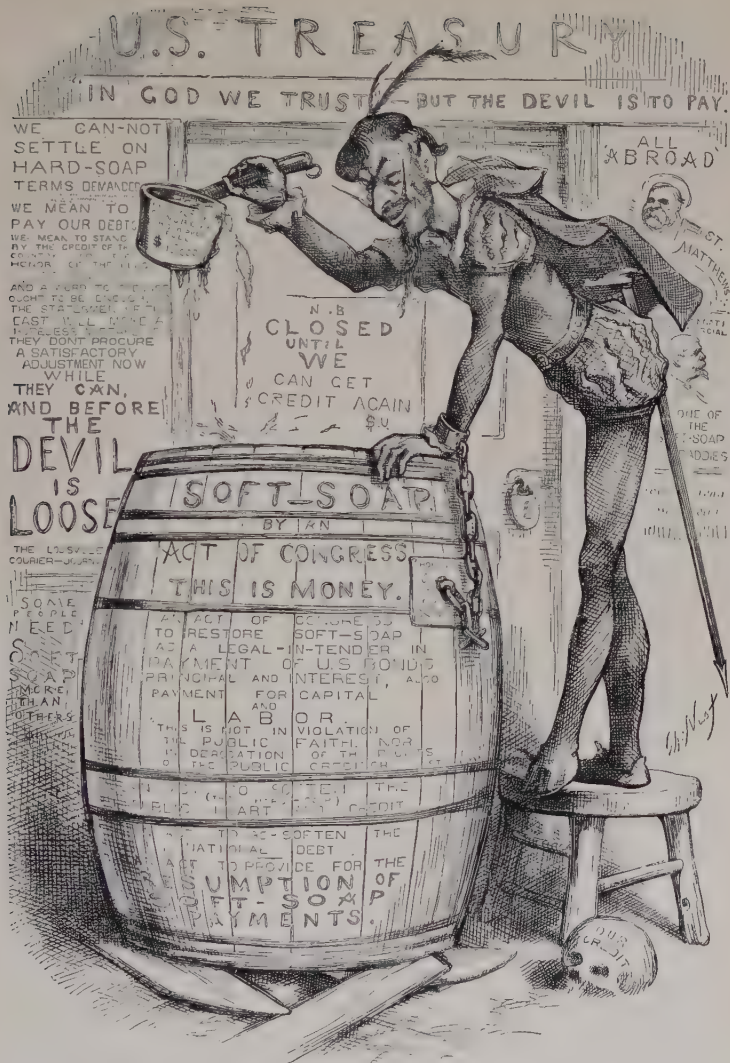 U.S. TREASURY
IN GOD WE TRUST—BUT THE DEVIL IS TO PAY.
WE CAN-NOT
SETTLE ON
HARD-SOAP
TERMS DEMANDED
WE MEAN TO
PAY OUR DEBTS
WE MEAN TO STAND
BY THE CREDIT OF THE
HONOR OF THE
OUGHT TO BE
THE STATESMEN OF THE
EAST WILL
THEY DONT PROCURE
A SATISFACTORY
ADJUSTMENT NOW
WHILE
THEY CAN,
AND BEFORE
THE
DEVIL
IS
LOOSE
THE LOUISVILLE
COURIER-JOURNAL
SOME
PEOPLE
NEED
SOFT
SOAP
MORE
THAN
OTHERS
$
N.B
CLOSED
UNTIL
WE
CAN GET
CREDIT AGAIN
$.U.
ALL
ABROAD
ST.
MATTHEWS
ONE OF
THE
SOFT-SOAP
DADDIES
SOFT-SOAP.
BY AN
ACT OF CONGRESS
THIS IS MONEY.
AN ACT OF CONGRESS
TO RESTORE SOFT-SOAP
AS A LEGAL-IN-TENDER IN
PAYMENT OF U.S BONDS
PRINCIPAL AND INTEREST, ALSO
PAYMENT FOR CAPITAL
AND
LABOR.
THIS IS NOT IN VIOLATION OF
THE PUBLIC FAITH. NOR
DEROGATION OF THE RIGHTS
OF THE PUBLIC CREDITOR
TO SOFTEN THE
CREDIT
TO RE-SOFTEN THE
NATIONAL DEBT
ACT TO PROVIDE FOR THE
RESUMPTION OF
SOFT-SOAP
PAYMENTS.
OUR
CREDIT
Th: Nast